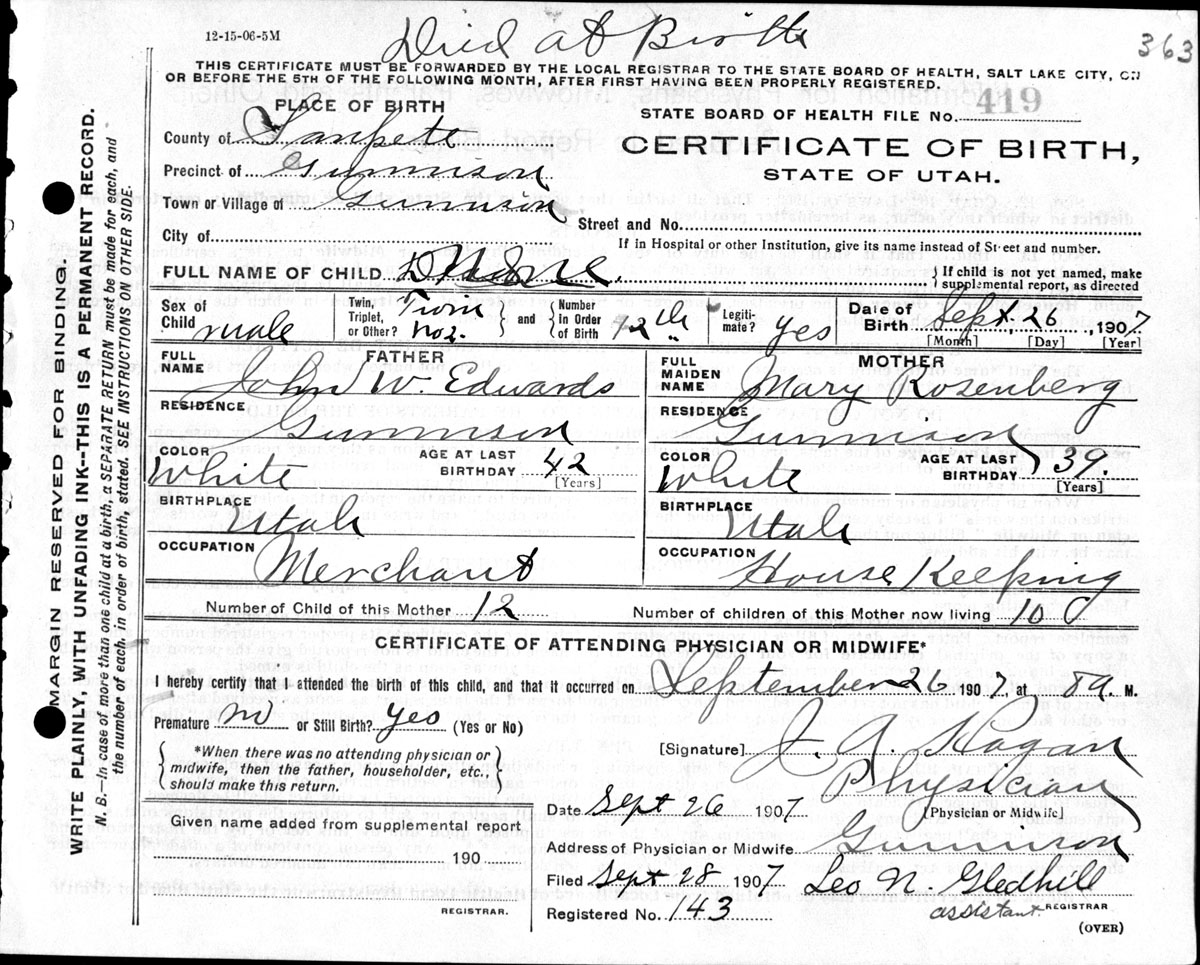 12-15-06-5M
Died at Birth
363
THIS CERTIFICATE MUST BE FORWARDED BY THE LOCAL REGISTRAR TO THE STATE BOARD OF HEALTH, SALT LAKE CITY, ON
OR BEFORE THE 5TH OF THE FOLLOWING MONTH, AFTER FIRST HAVING BEEN PROPERLY REGISTERED.
PLACE OF BIRTH
STATE BOARD OF HEALTH FILE No. 419
County of Sanpete
CERTIFICATE OF BIRTH,
Precinct of Gunnison
STATE OF UTAH.
Town or Village of Gunnison
Street and No.
City of
If in Hospital or other Institution, give its name instead of Street and number.
FULL NAME OF CHILD
If child is not yet named, make
supplemental report, as directed
Sex of Child male
Twin, Triplet, or Other? Twin No 2.
and
Number in Order of Birth 12th
Legiti-mate? yes
Date of Birth Sept 26, 1907
[Month] [Day] [Year]
FATHER
FULL NAME John W. Edwards
RESIDENCE Gunnison
COLOR White
AGE AT LAST BIRTHDAY 42
[Years]
BIRTHPLACE Utah
OCCUPATION Merchant
MOTHER
FULL MAIDEN NAME Mary Rosenberg
RESIDENCE Gunnison
COLOR White
AGE AT LAST BIRTHDAY 39
[Years]
BIRTHPLACE Utah
OCCUPATION House Keeping
Number of Child of this Mother 12
Number of children of this Mother now living 10
CERTIFICATE OF ATTENDING PHYSICIAN OR MIDWIFE*
I hereby certify that I attended the birth of this child, and that it occurred on September 26 1907, at 8 a. M.
Premature no or Still Birth? yes (Yes or No)
*When there was no attending physician or
midwife, then the father, householder, etc.,
should make this return.
[Signature] J. A. Hagan
Physician
[Physician or Midwife]
Date Sept 26 1907
Given name added from supplemental report
190
REGISTRAR.
Address of Physician or Midwife Gunnison
Filed Sept 28 1907 Leo N. Gledhill
assistant REGISTRAR
Registered No. 143
(OVER)
MARGIN RESERVED FOR BINDING.
WRITE PLAINLY, WITH UNFADING INK--THIS IS A PERMANENT RECORD.
N. B.—In case of more than one child at a birth, a SEPARATE RETURN must be made for each, and
the number of each, in order of birth, stated. SEE INSTRUCTIONS ON OTHER SIDE.